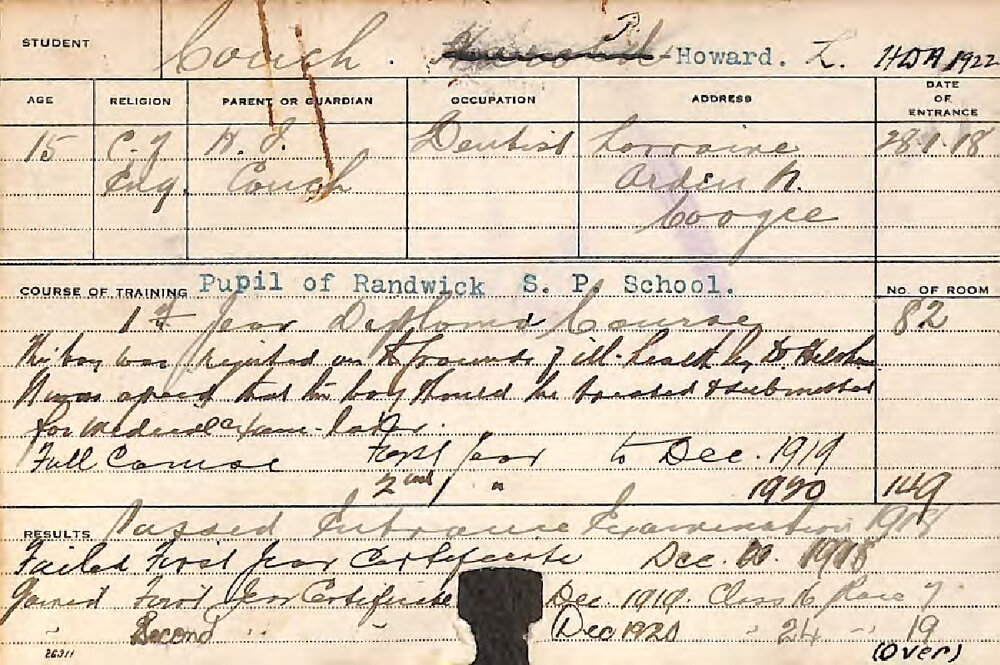 STUDENT Couch. J. Howard. L. HDA 1922
AGE RELIGION PARENT OR GUARDIAN OCCUPATION ADDRESS DATE OF ENTRANCE
15 C. of H. J. Dentist Lorraine 28.1.18
Eng. Couch Arden St.
Coogee
COURSE OF TRAINING Pupil of Randwick S. P. School. No. OF ROOM
1st Year Diploma Course 82
The boy was rejected on the grounds of ill-health by Dr
It was agreed that the boy should be treated & submitted
for medical exam later.
Full Course First Year to Dec. 1919
2nd " 1920 149
RESULTS Passed Entrance Examination 1918
Failed First Year Certificate Dec. 1918
Gained First Year Certificate Dec. 1919. Class 16 Place 7
" Second " " Dec 1920 " 24 " 19
26311 (Over)